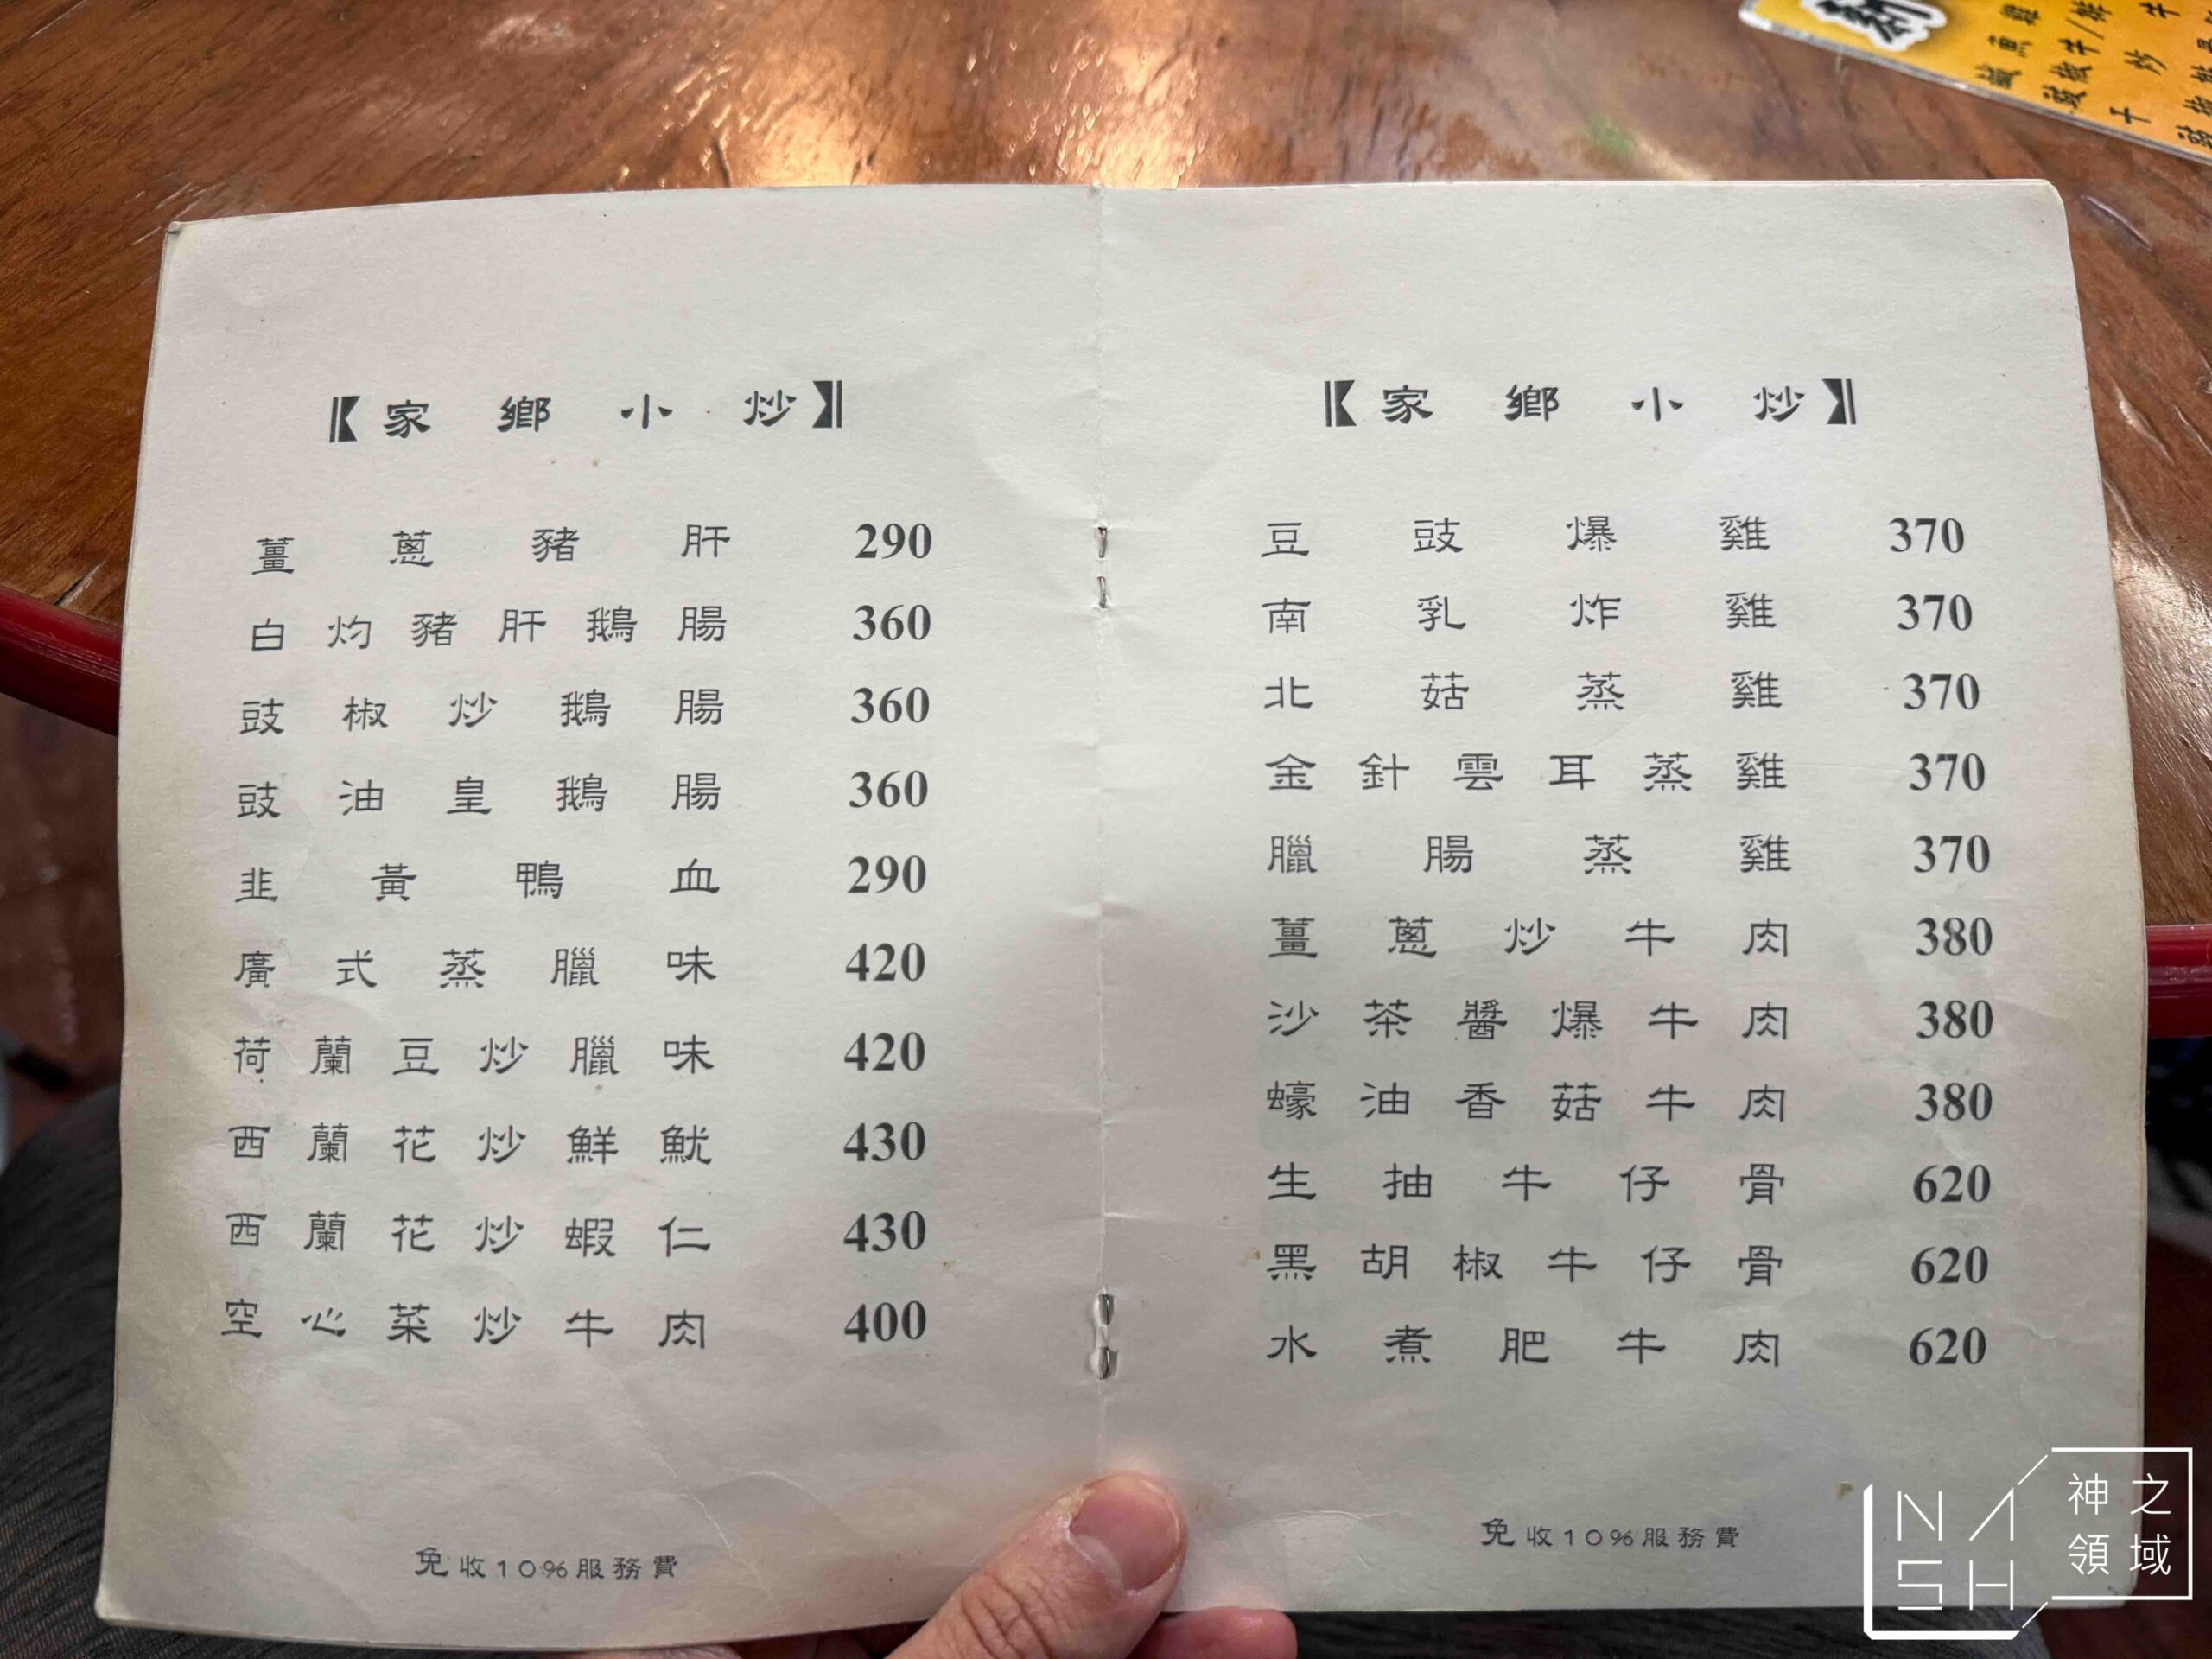 【家鄉小炒】
薑蔥豬肝 290
白灼豬肝鵝腸 360
豉椒炒鵝腸 360
豉油皇鵝腸 360
韭黃鴨血 290
廣式蒸臘味 420
荷蘭豆炒臘味 420
西蘭花炒鮮魷 430
西蘭花炒蝦仁 430
空心菜炒牛肉 400
免收10%服務費
【家鄉小炒】
豆豉爆雞 370
南乳炸雞 370
北菇蒸雞 370
金針雲耳蒸雞 370
臘腸蒸雞 370
薑蔥炒牛肉 380
沙茶醬爆牛肉 380
蠔油香菇牛肉 380
生抽牛仔骨 620
黑胡椒牛仔骨 620
水煮肥牛肉 620
免收10%服務費
NASH
神之
領域